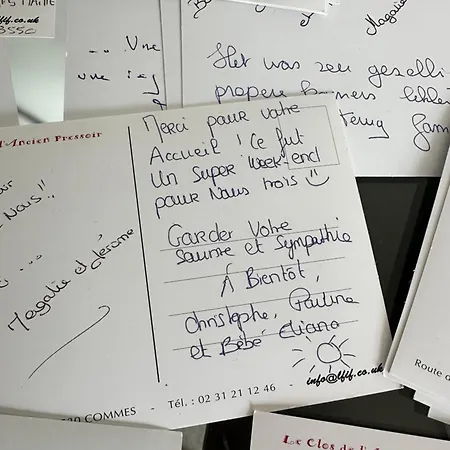 lfjf.co.uk
3550
... Vne
vne
Magalie
Het was zeer gezelli
propere kamers
terug
l'Ancien Pressoir
our
Nous !!
...
Magalie et Jérôme
Merci pour votre
Accueil ! Ce fut
Un Super Week-end
pour Nous trois
Garder Votre
Sourire et Sympathie
A Bientôt,
christophe, Pauline
et Bébé Eliana
info@lfjf.co.uk
COMMES - Tél. : 02 31 21 12 46 -
Route d
Le Clos de l'A